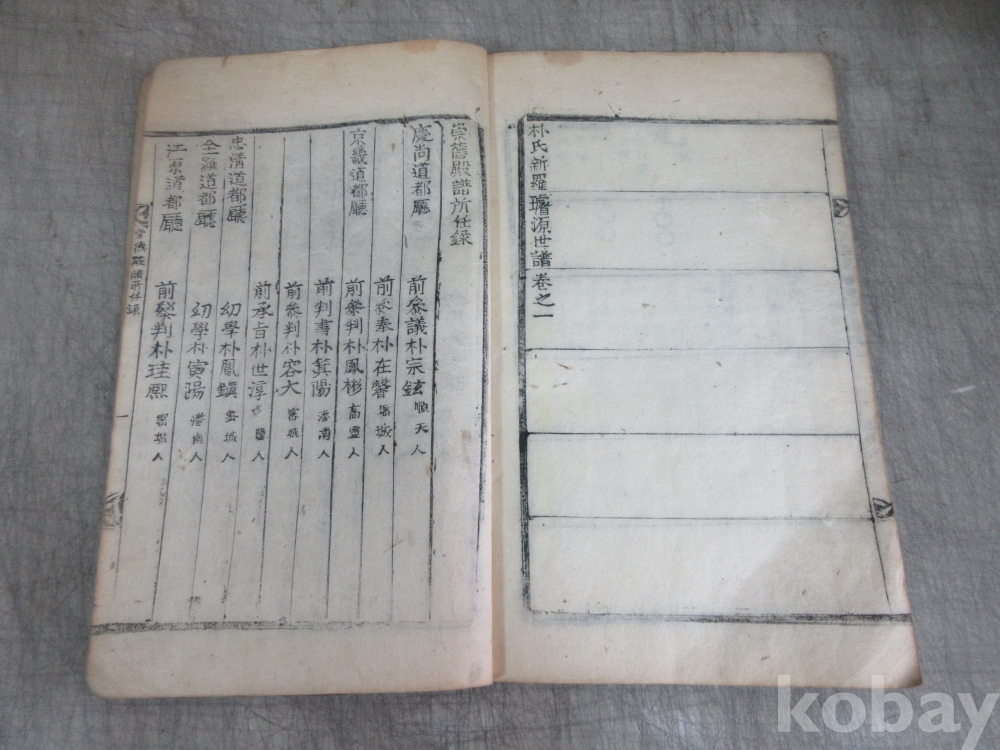 朴氏新羅璿源世譜卷之一
崇德殿譜所任錄
慶尚道都廳 前叅議朴宗鉉 順天人
前叅奉朴在馨 密城人
京畿道都廳 前叅判朴鳳彬 高靈人
前判書朴箕陽 潘南人
前叅判朴容大 密城人
前承旨朴世淳 人
忠清道都廳 幼學朴鳳鎮 密城人
全羅道都廳 幼學朴寅陽 潘南人
江原道都廳 前叅判朴珪熙 密城人
崇德殿譜所任錄
一
kobay